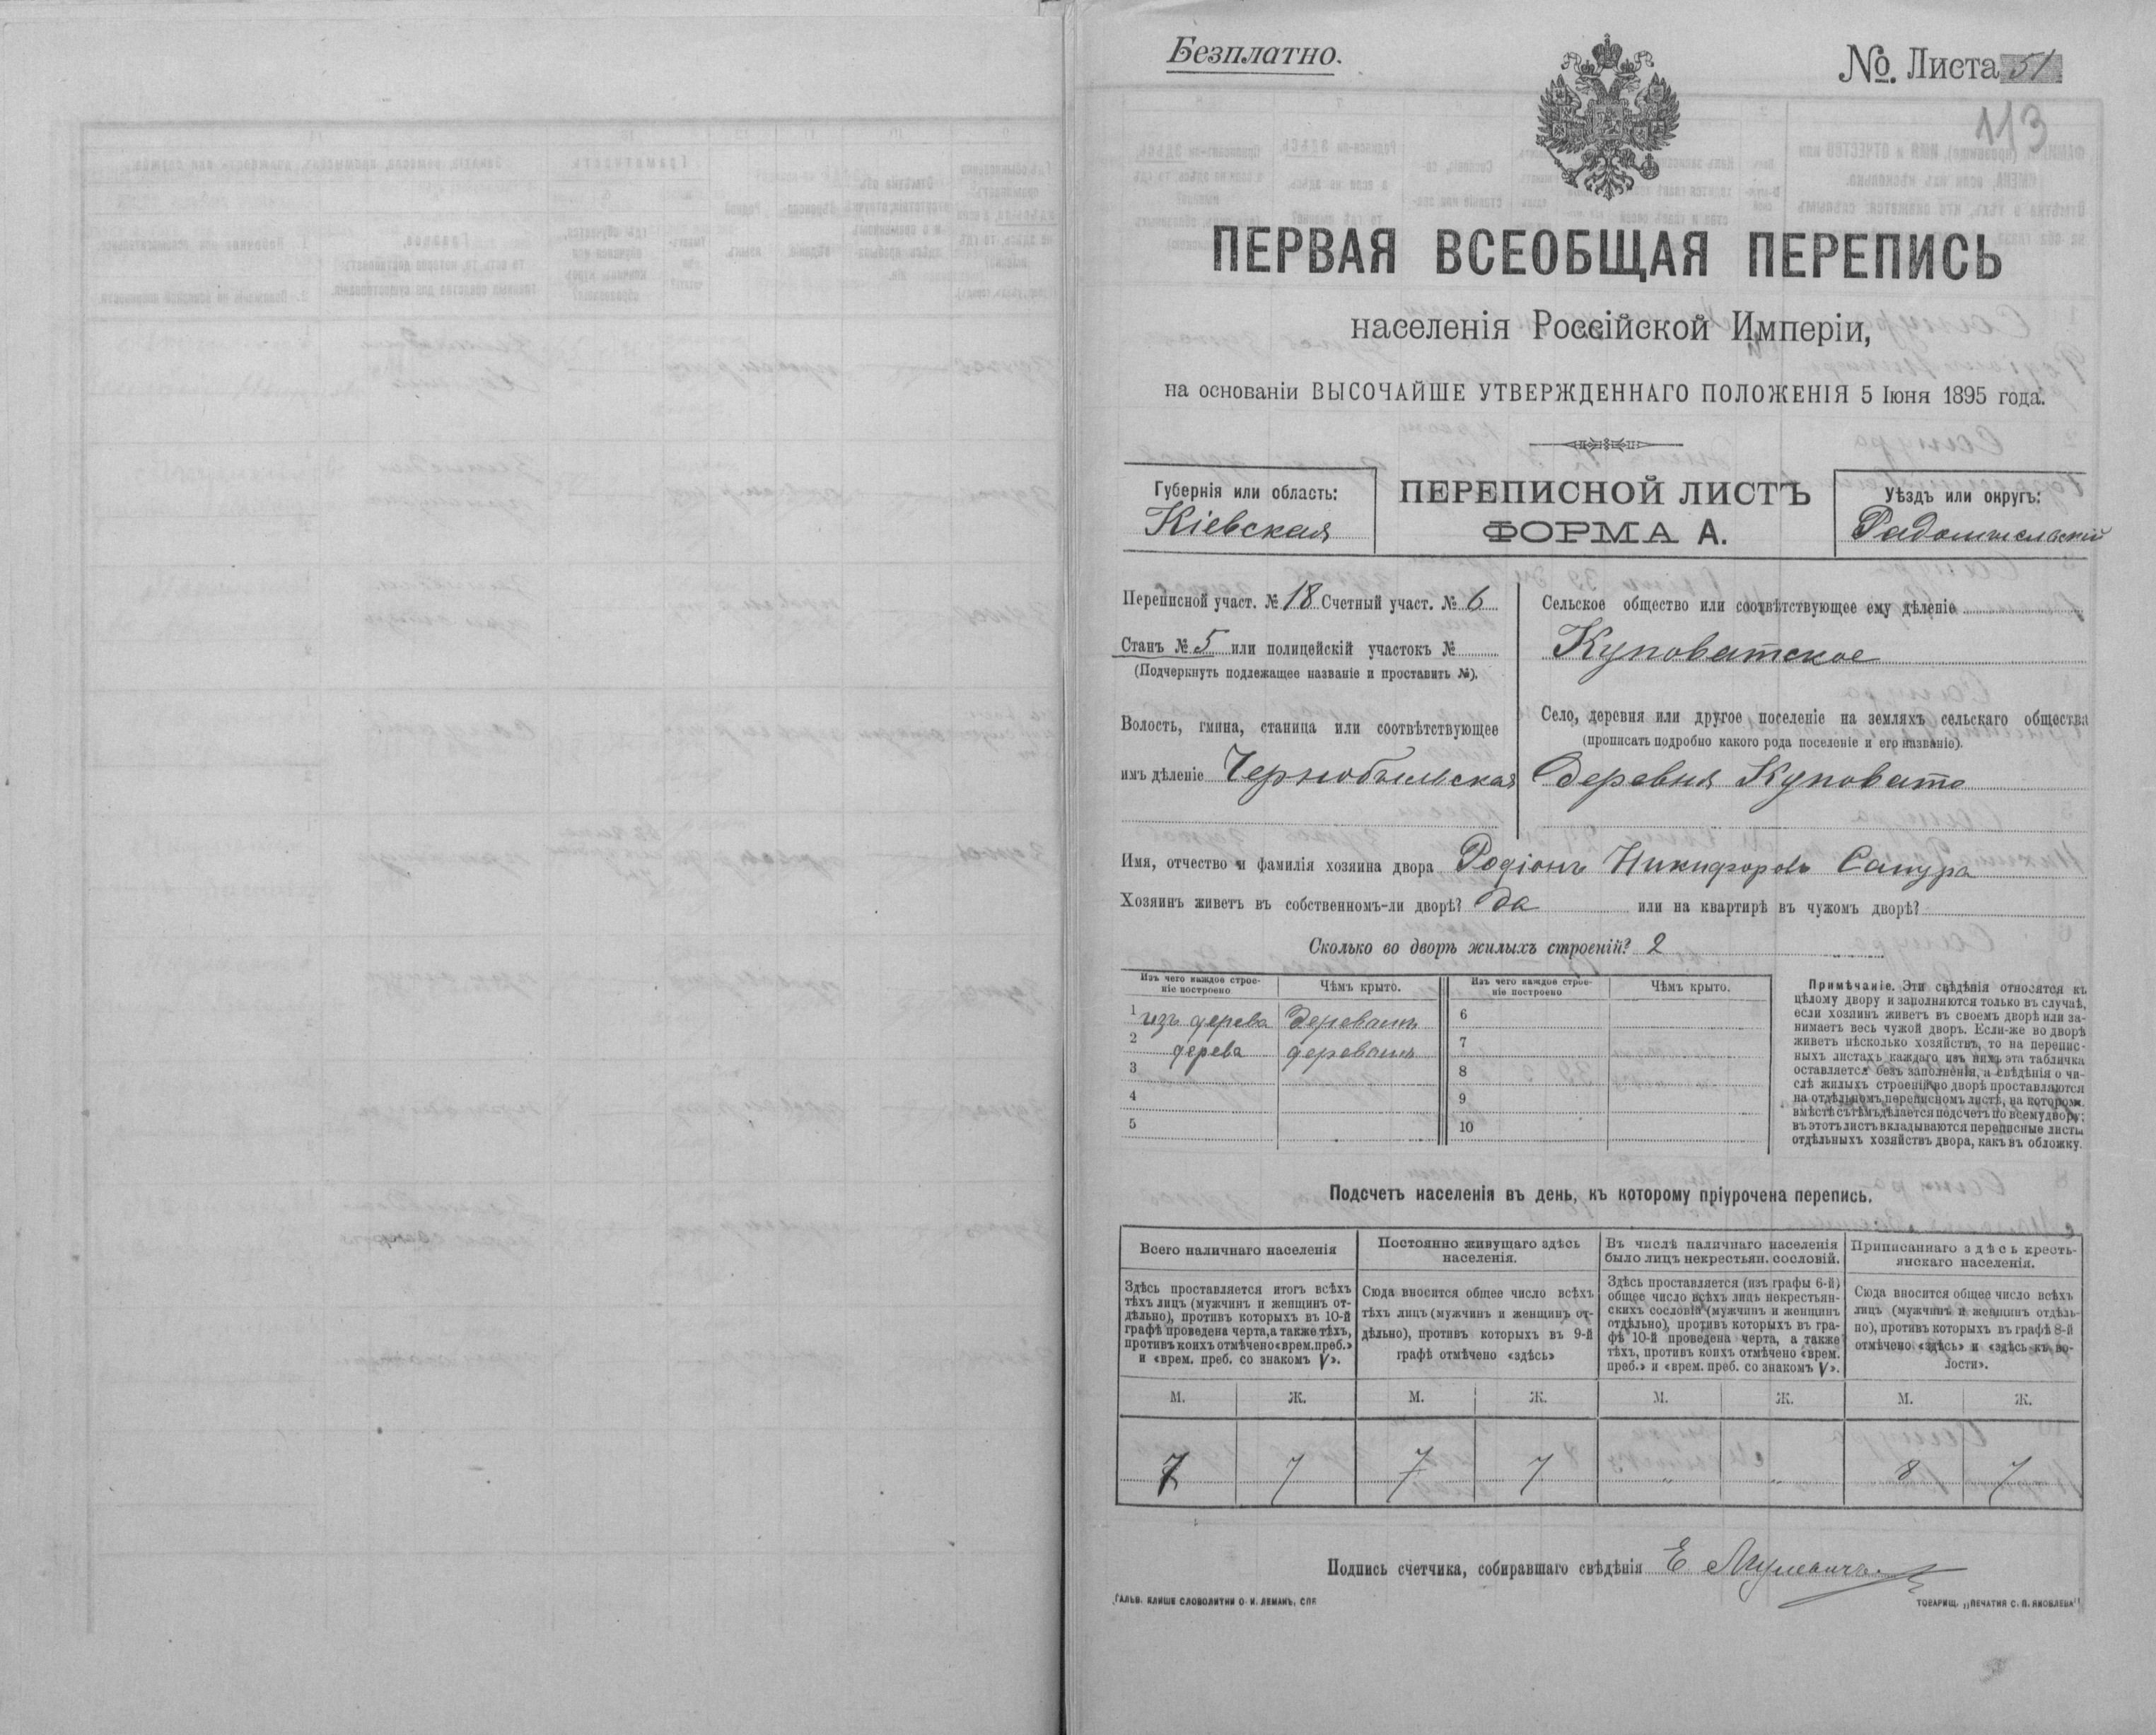 Безплатно.
№. Листа 51
113
ПЕРВАЯ ВСЕОБЩАЯ ПЕРЕПИСЬ
населенія Россійской Имперіи,
на основаніи ВЫСОЧАЙШЕ УТВЕРЖДЕННАГО ПОЛОЖЕНІЯ 5 Іюня 1895 года.
Губернія или область:
Кіевская
ПЕРЕПИСНОЙ ЛИСТЪ
ФОРМА А.
Уѣздъ или округъ:
Радомысльскій
Переписной участ. № 18 Счетный участ. № 6
Станъ № 5 или полицейскій участокъ №
(Подчеркнуть подлежащее названіе и проставить №).
Волость, гмина, станица или соотвѣтствующее
имъ дѣленіе Чернобыльская
Сельское общество или соотвѣтствующее ему дѣленіе
Куповатское
Село, деревня или другое поселеніе на земляхъ сельскаго общества
(прописать подробно какого рода поселеніе и его названіе).
Деревня Куповато
Имя, отчество и фамилія хозяина двора Родіонъ Никифоровъ Сапура
Хозяинъ живетъ въ собственномъ-ли дворѣ? Да или на квартирѣ въ чужомъ дворѣ?
Сколько во дворѣ жилыхъ строеній? 2
Изъ чего каждое строе-
ніе построено
Чѣмъ крыто.
Изъ чего каждое строе-
ніе построено
Чѣмъ крыто.
1 изъ дерева Деревомъ
2 дерева деревомъ
3
4
5
6
7
8
9
10
Примѣчаніе. Эти свѣдѣнія относятся къ
цѣлому двору и заполняются только въ случаѣ,
если хозяинъ живетъ въ своемъ дворѣ или за-
нимаетъ весь чужой дворъ. Если-же во дворѣ
живетъ нѣсколько хозяйствъ, то на перепис-
ныхъ листахъ каждаго изъ нихъ эта табличка
оставляется безъ заполненія, а свѣдѣнія о чи-
слѣ жилыхъ строеній во дворѣ проставляются
на отдѣльномъ переписномъ листѣ, на которомъ
вмѣстѣ съ тѣмъ дѣлается подсчетъ по всему двору;
въ этотъ листъ вкладываются переписные листы
отдѣльныхъ хозяйствъ двора, какъ въ обложку.
Подсчетъ населенія въ день, къ которому пріурочена перепись.
Всего наличнаго населенія
Здѣсь проставляется итогъ всѣхъ
тѣхъ лицъ (мужчинъ и женщинъ от-
дѣльно), противъ которыхъ въ 10-й
графѣ проведена черта, а также тѣхъ,
противъ коихъ отмѣчено «врем. преб.»
и «врем. преб. со знакомъ V».
Постоянно живущаго здѣсь
населенія.
Сюда вносится общее число всѣхъ
тѣхъ лицъ (мужчинъ и женщинъ от-
дѣльно), противъ которыхъ въ 9-й
графѣ отмѣчено «здѣсь»
Въ числѣ наличнаго населенія
было лицъ некрестьян. сословій.
Здѣсь проставляется (изъ графы 6-й)
общее число всѣхъ лицъ некрестьян-
скихъ сословій (мужчинъ и женщинъ
отдѣльно), противъ которыхъ въ гра-
фѣ 10-й проведена черта, а также
тѣхъ, противъ коихъ отмѣчено «врем.
преб.» и «врем. преб. со знакомъ V».
Приписаннаго здѣсь кресть-
янскаго населенія.
Сюда вносится общее число всѣхъ
лицъ (мужчинъ и женщинъ отдѣль-
но), противъ которыхъ въ графѣ 8-й
отмѣчено «здѣсь» и «здѣсь къ во-
лости».
М. Ж. М. Ж. М. Ж. М. Ж.
7 7 7 7 " " 8 7
Подпись счетчика, собиравшаго свѣдѣнія Е
ГАЛЬВ. КЛИШЕ СЛОВОЛИТНИ О. И. ЛЕМАНЪ, СПБ
ТОВАРИЩ. „ПЕЧАТНЯ С. П. ЯКОВЛЕВА"